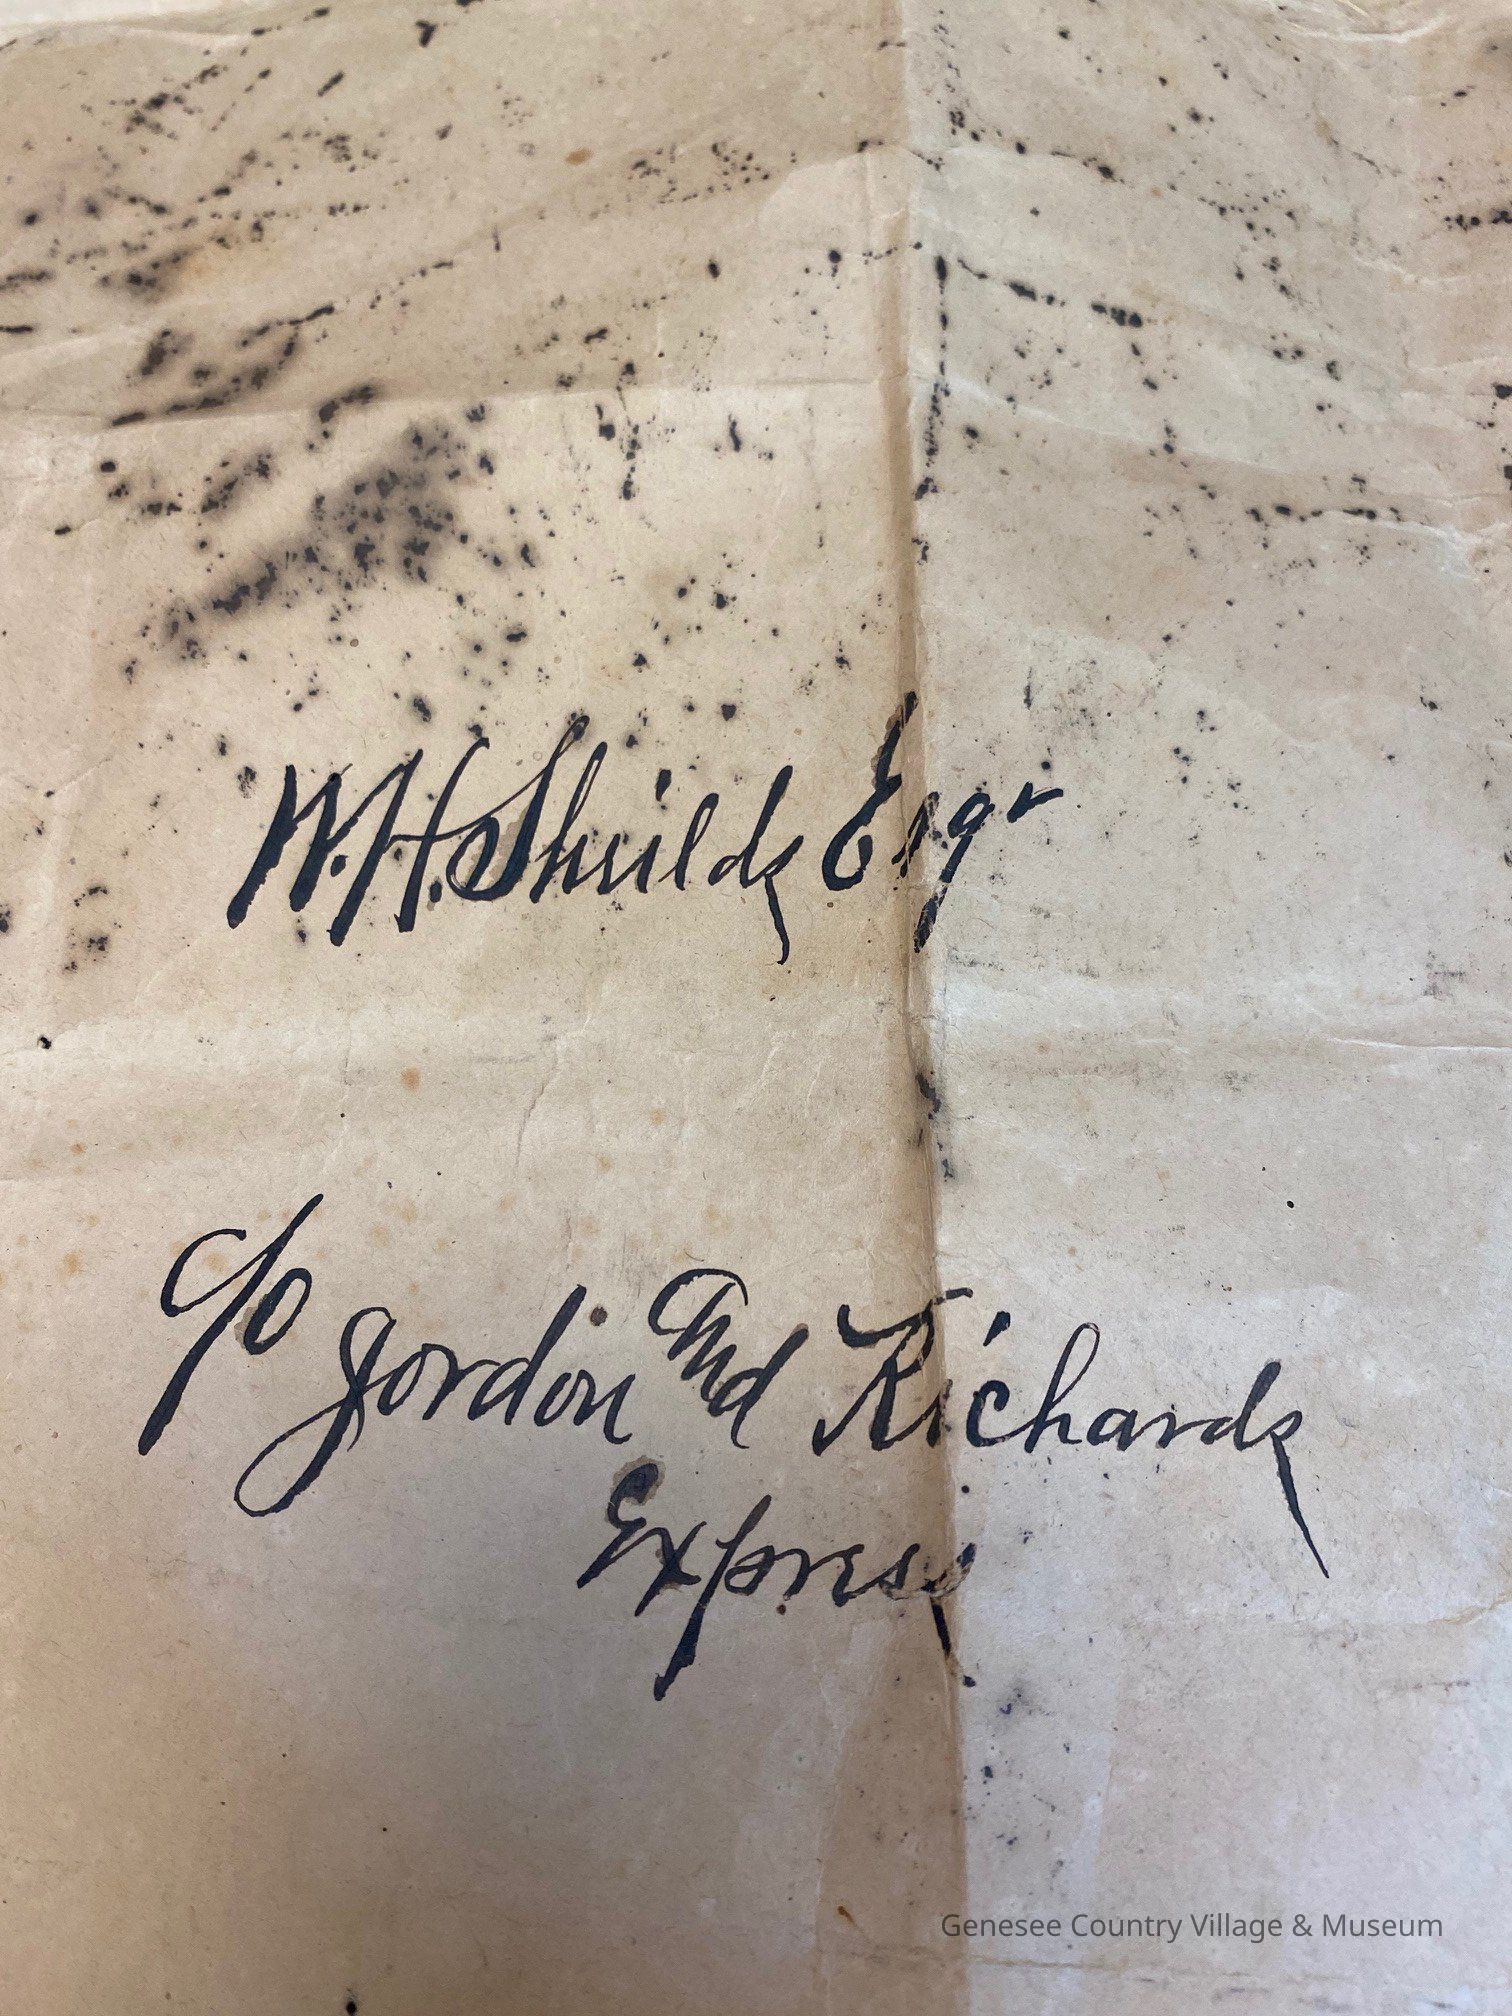 W. H. Sheilds Esqr
C/O Gordon And Richards
Express
Genesee Country Village & Museum